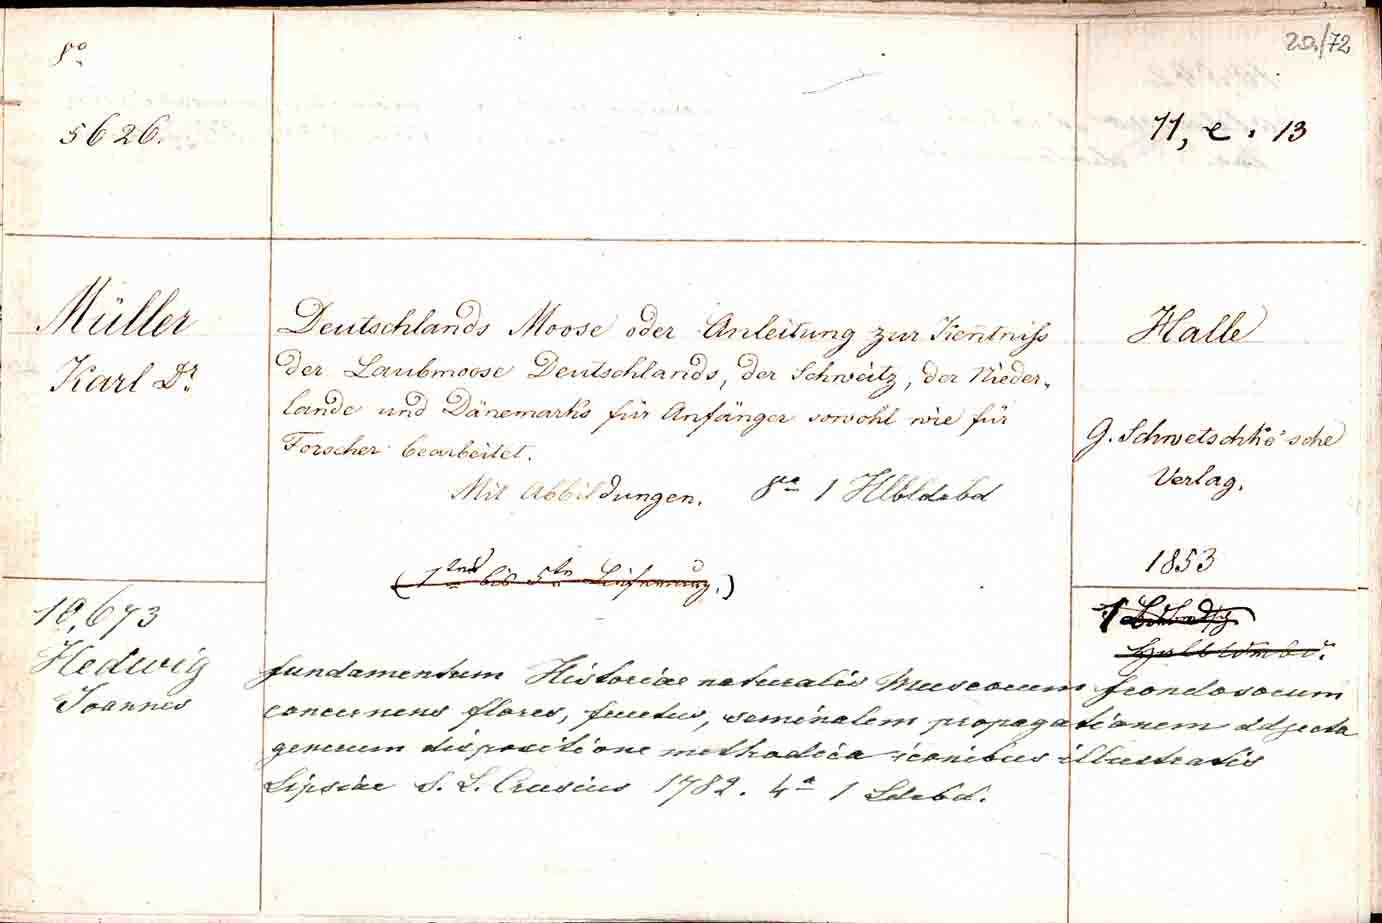 8º
20./72
5626.
11, e. 13
Müller
Karl Dr
Deutschlands Moose oder Anleitung zur Ken̄tniss
der Laubmoose Deutschlands, der Schweitz, der Nieder-
lande und Dänemarks für Anfänger sowohl wie für
Forscher bearbeitet.
Mit Abbildungen. 8va 1 Hlbldrbd
(1ter bis 5te Lieferung.)
Halle
G. Schwetschke'sche
Verlag.
1853
1
10,673
Hedwig
Joannes
fundamentum Historiae naturalis Muscorum frondosorum
concernens flores, fructus, seminalem propagationem adjecta
generum dispositione methodica iconibus illustratis
Lipsiae S. L. Crusius 1782. 4a 1 Ldrbd.